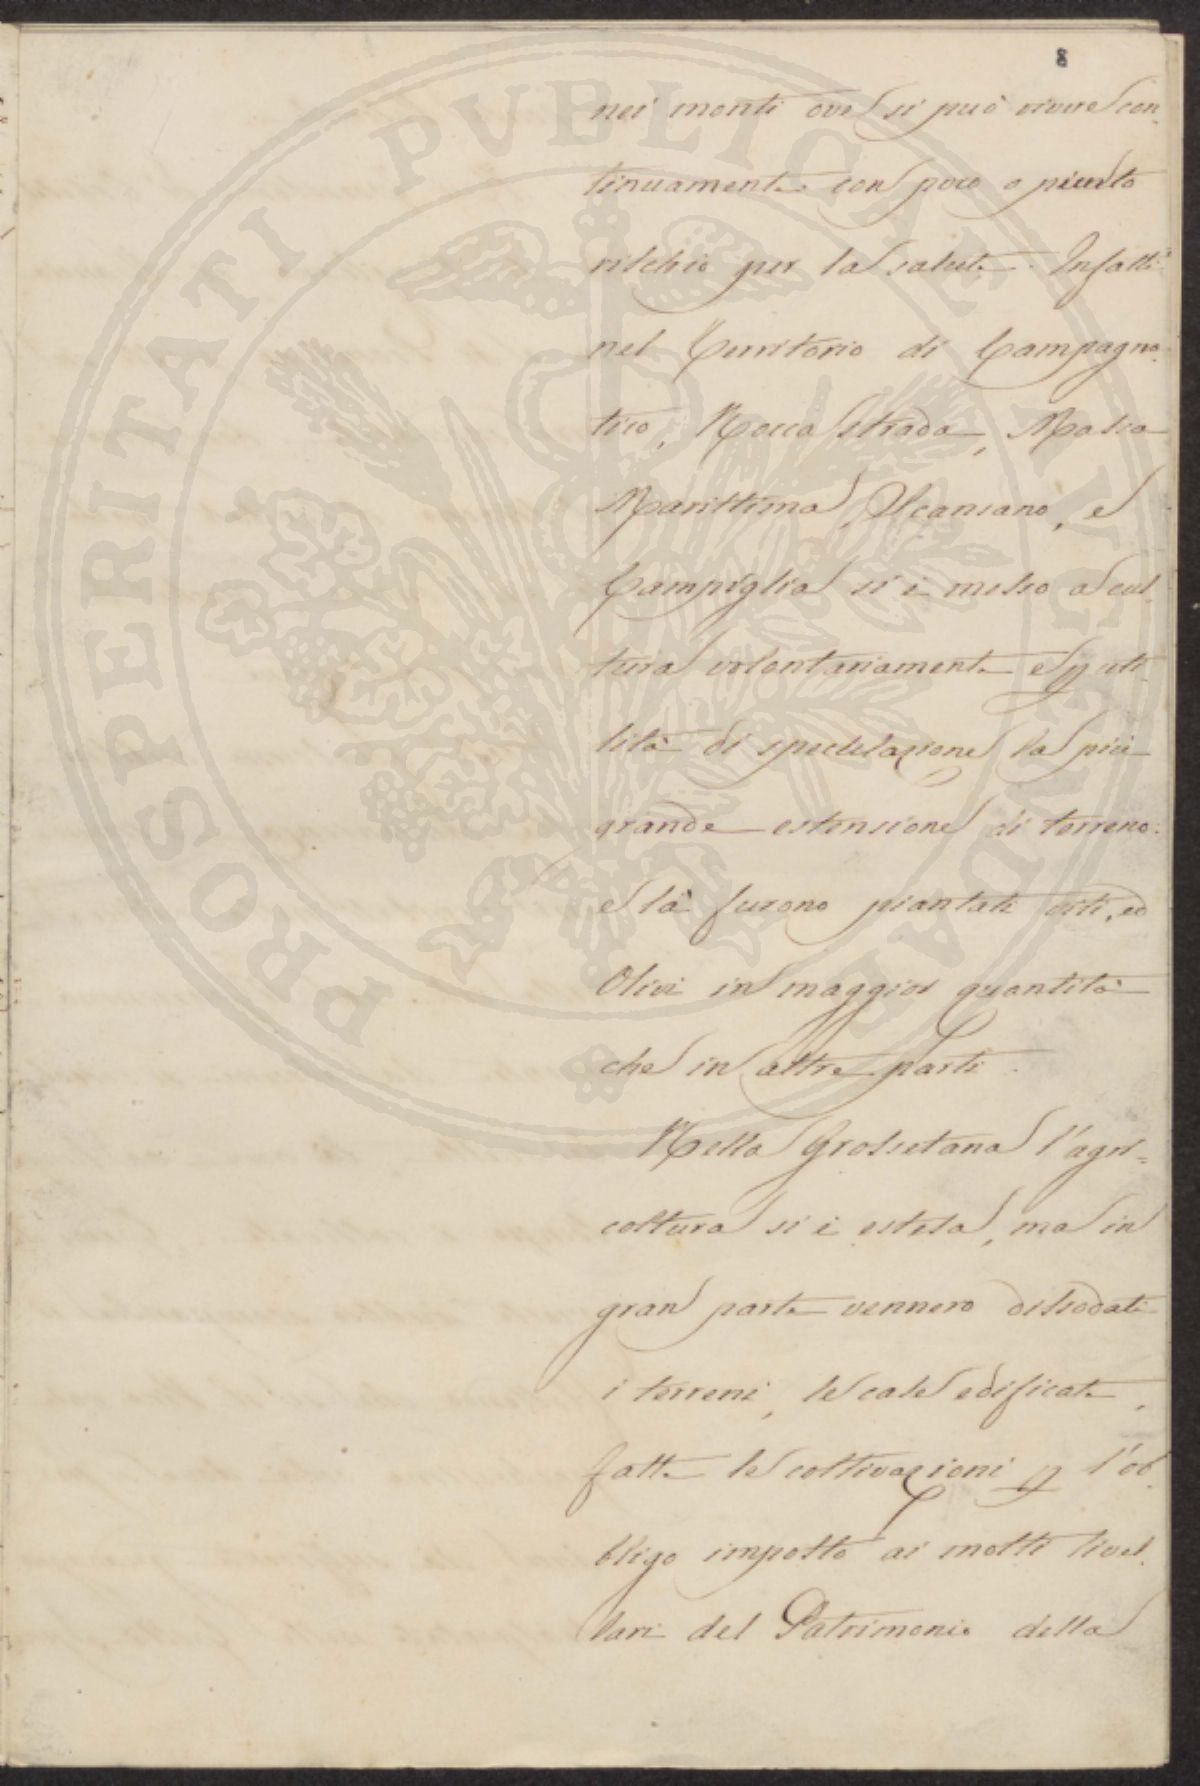 8
nei monti ove si può vivere con-
tinuamente con poco o niente
rischio per la salute. Infatti
nel Territorio di Campagna-
tico, Rocca Strada, Massa
Marittima, Scansano, e
Campiglia si è messo a cul-
tura volontariamente e p uti-
lità di speculazione la più
grande estensione di terreno:
e là furono piantati viti, ed
Olivi in maggior quantità
che in altre parti.
Nella Grossetana l'agri=
coltura si è estesa, ma in
gran parte vennero dissodati
i terreni, le case edificate,
fatte le coltivazioni p l'ob-
bligo imposto ai molti livel-
lari del Patrimonio della
PROSPERITATI PVBLICAE AVGENDAE